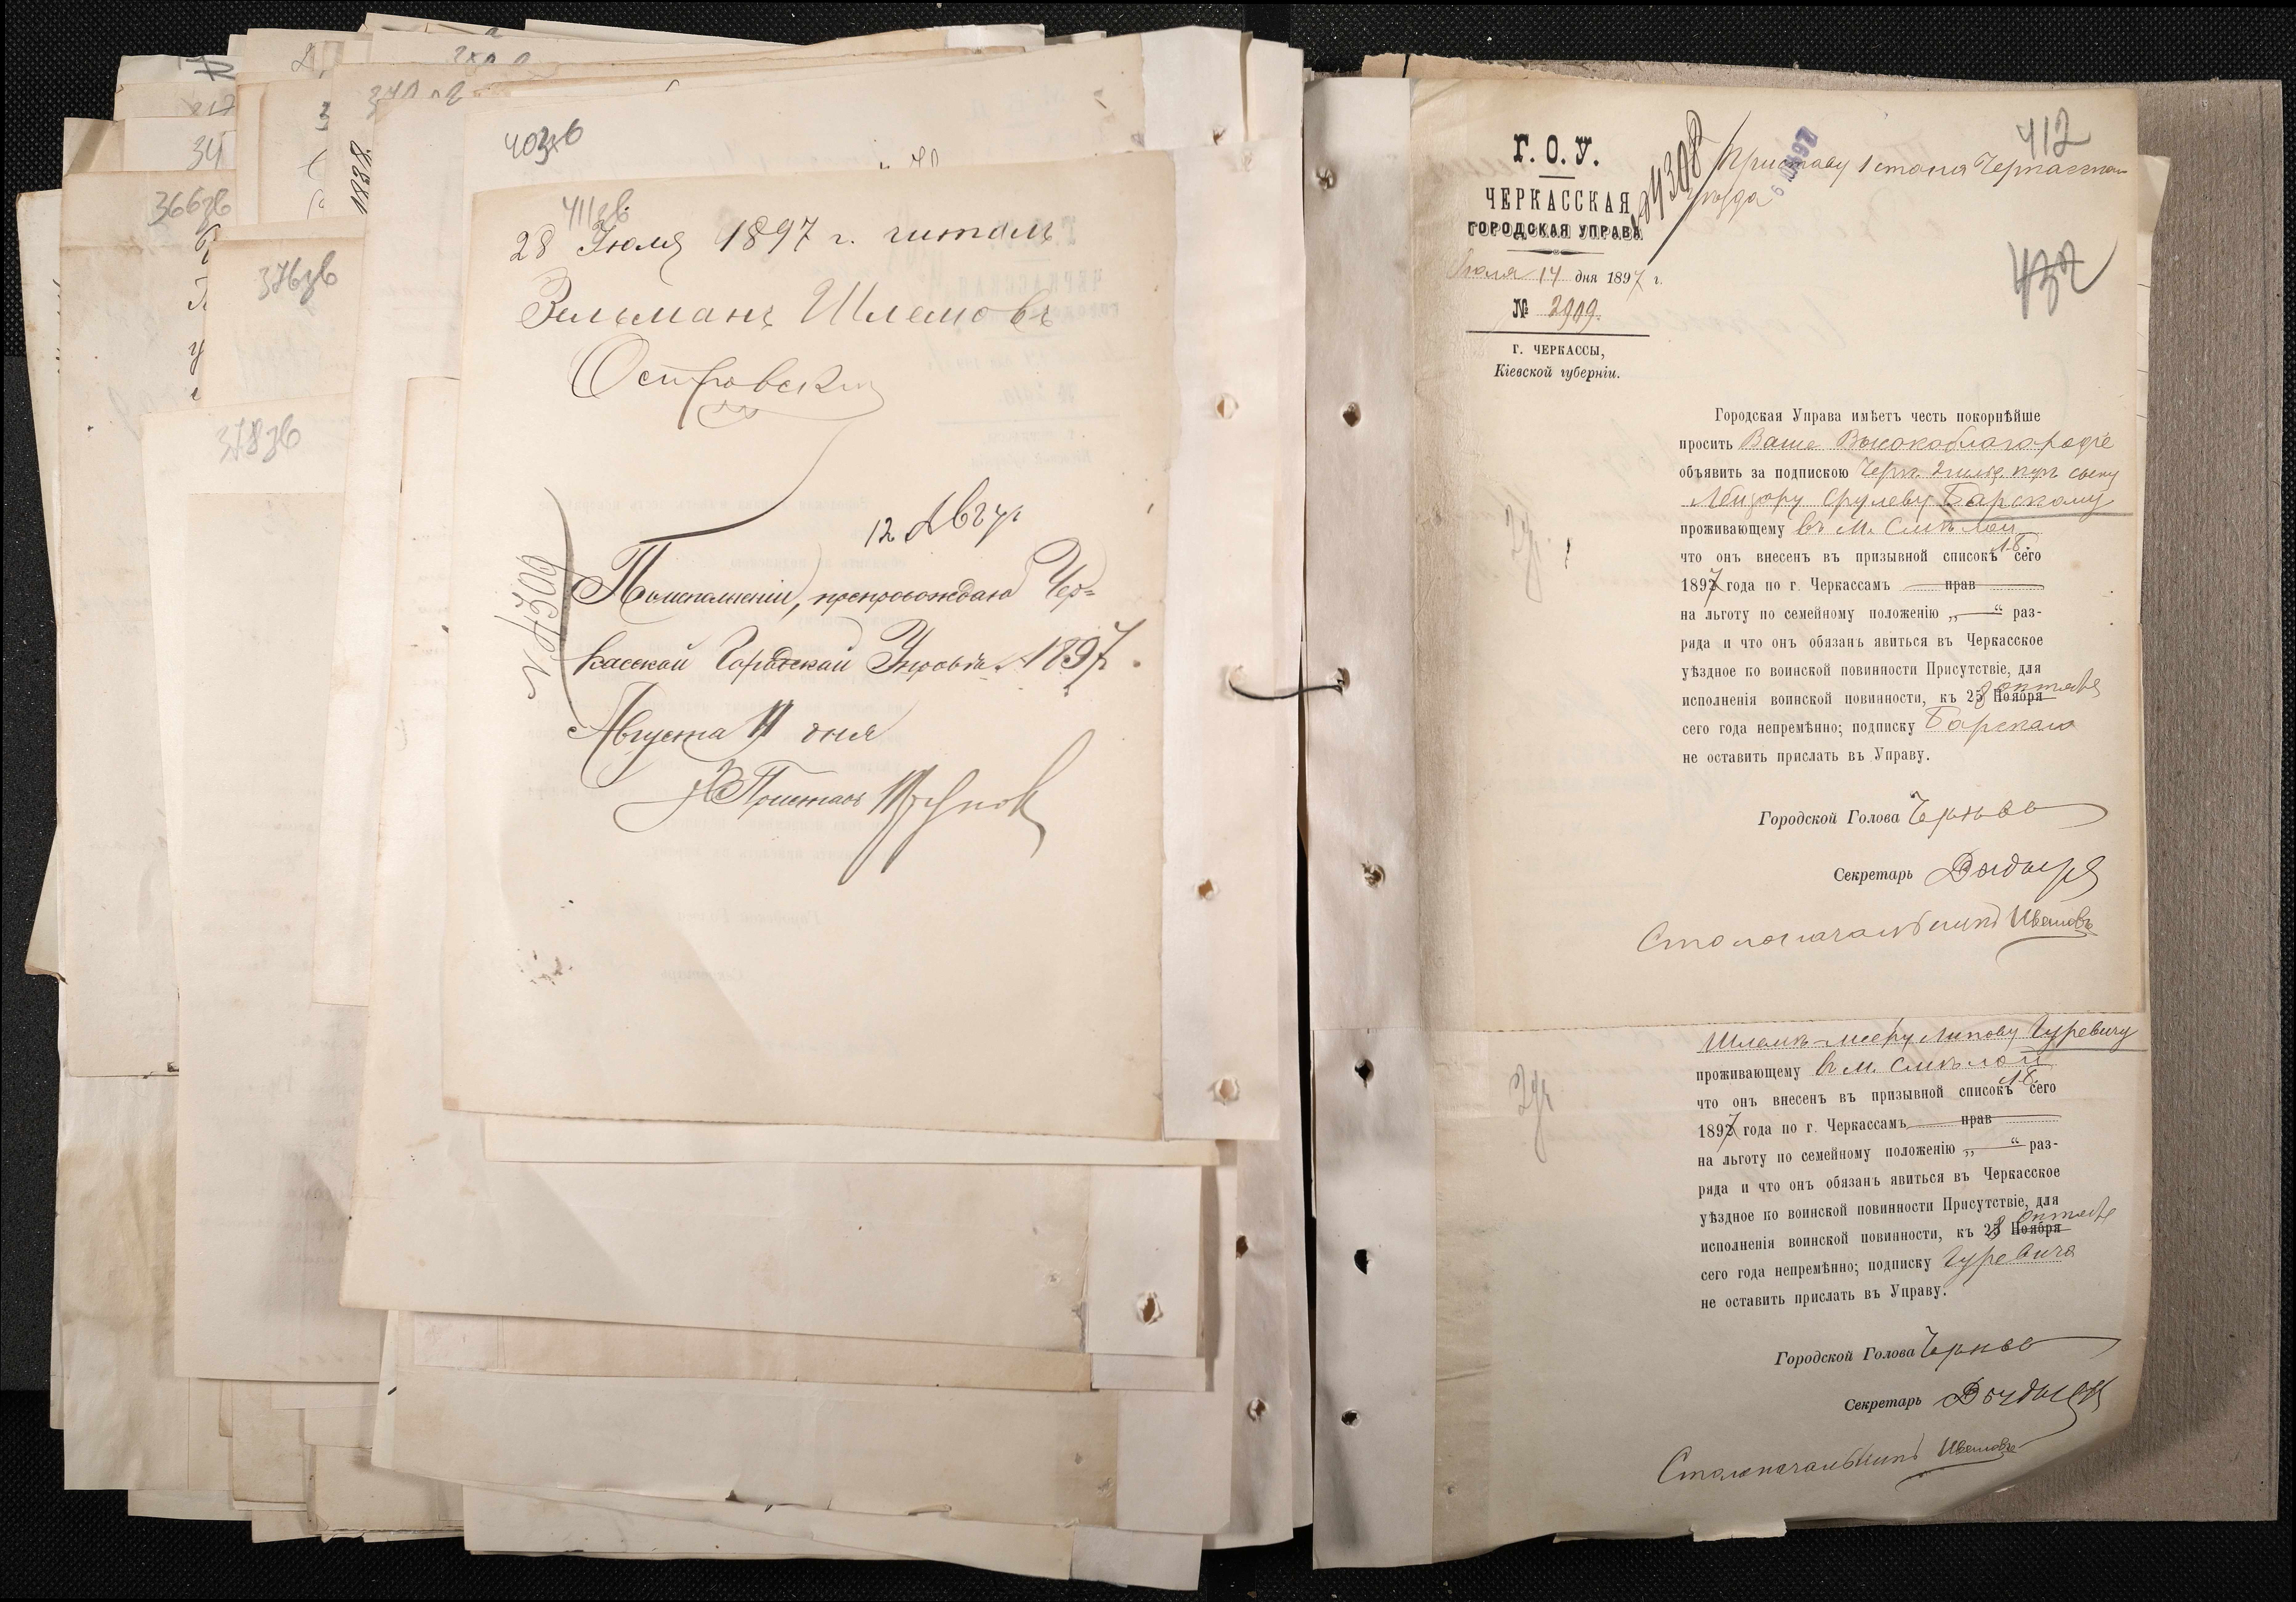 217
34
366зв
376зв
378зв
1838.
403зв
411зв.
28 Іюля 1897 г. читалъ
Зельманъ Шлемовъ
Островскій
12 Авгу
№ 4309
По исполненіи, препровождаю Чер=
касской Городской Управѣ. 1897 г.
Августа 11 дня
Приставъ
412
Г. О. У.
ЧЕРКАССКАЯ
ГОРОДСКАЯ УПРАВА
Іюля 14 дня 1897 г.
№ 2909.
Г. ЧЕРКАССЫ,
Кіевской губерніи.
№ 4308
Приставу 1 стана Черкасскаго
уѣзда
432
Городская Управа имѣетъ честь покорнѣйше
просить Ваше Высокоблагородіе
объявить за подпискою Черк. 2 гильд. куп. сыну
Лейзору Срулеву Барскому
проживающему въ м. Смѣлой
что онъ внесенъ въ призывной списокъ сего
1897 года по г. Черкассамъ прав
на льготу по семейному положенію „ — “ раз-
ряда и что онъ обязанъ явиться въ Черкасское
уѣздное по воинской повинности Присутствіе, для
исполненія воинской повинности, къ 28 Ноября октября
сего года непремѣнно; подписку Барскаго
не оставить прислать въ Управу.
Городской Голова
Секретарь
Столоначальникъ Ивановъ
Шлемѣ-Мееру Липову Гуревичу
проживающему въ м. Смѣлой
что онъ внесенъ въ призывной списокъ сего
1897 года по г. Черкассамъ прав
на льготу по семейному положенію „ — “ раз-
ряда и что онъ обязанъ явиться въ Черкасское
уѣздное по воинской повинности Присутствіе, для
исполненія воинской повинности, къ 28 Ноября октября
сего года непремѣнно; подписку Гуревича
не оставить прислать въ Управу.
Городской Голова
Секретарь
Столоначальникъ Ивановъ